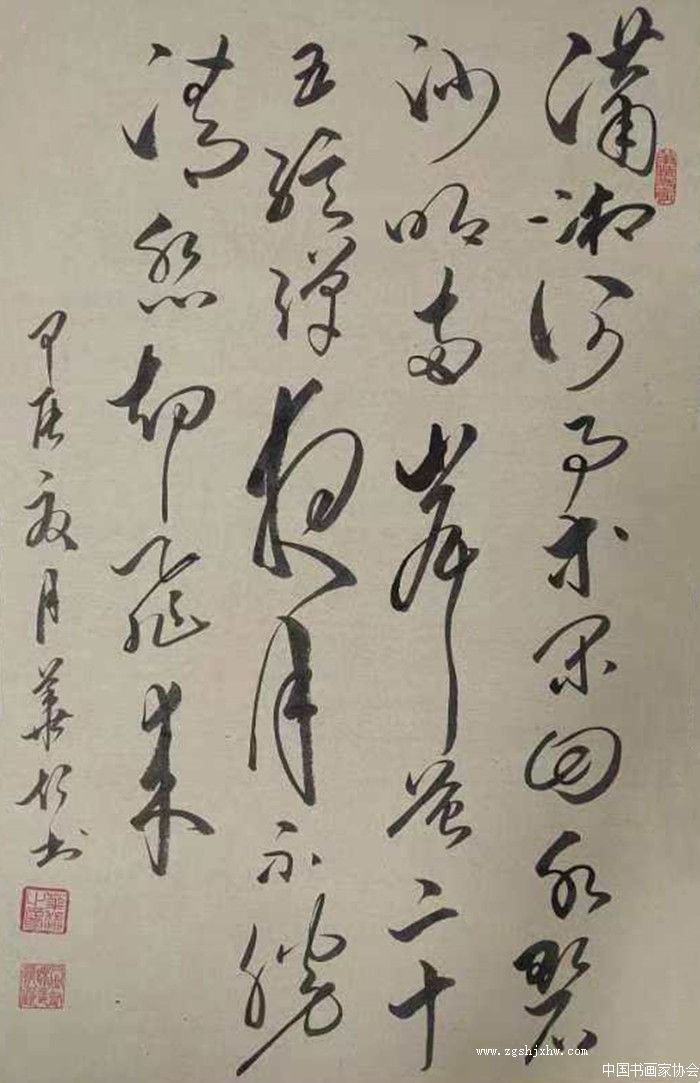 瀟湘何事等閒回水碧
沙明两岸苔二十
五絃弹夜月不勝
清怨却飛来
甲辰夏月華书
www.zgshjxhw.com
中国书画家协会